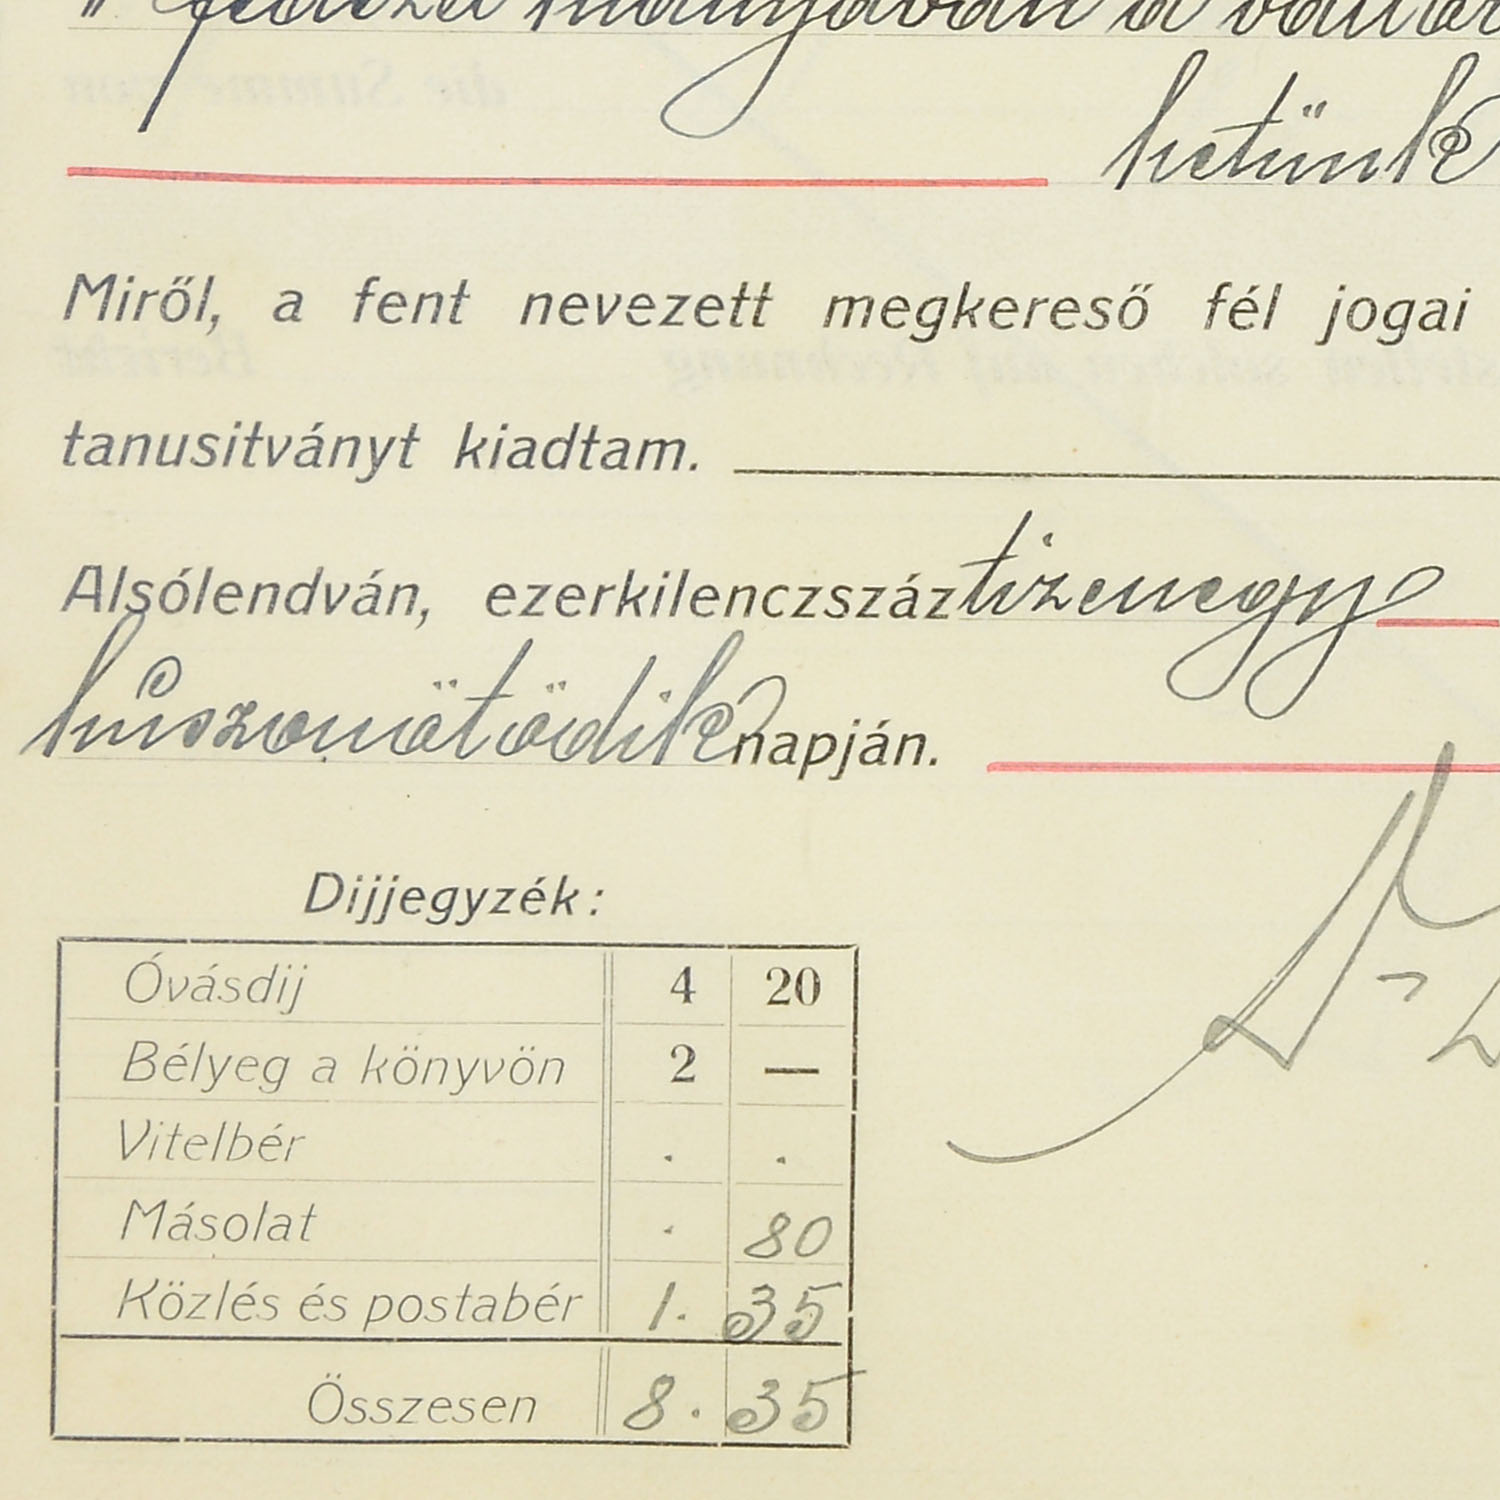 fedezet hiányában a
hetünk
Miről, a fent nevezett megkereső fél jogai
tanusitványt kiadtam.
Alsólendván, ezerkilenczszáz tizenegy
húszonötödik napján.
Dijjegyzék:
Óvásdij 4 20
Bélyeg a könyvön 2 —
Vitelbér . .
Másolat . 80
Közlés és postabér 1. 35
Összesen 8. 35